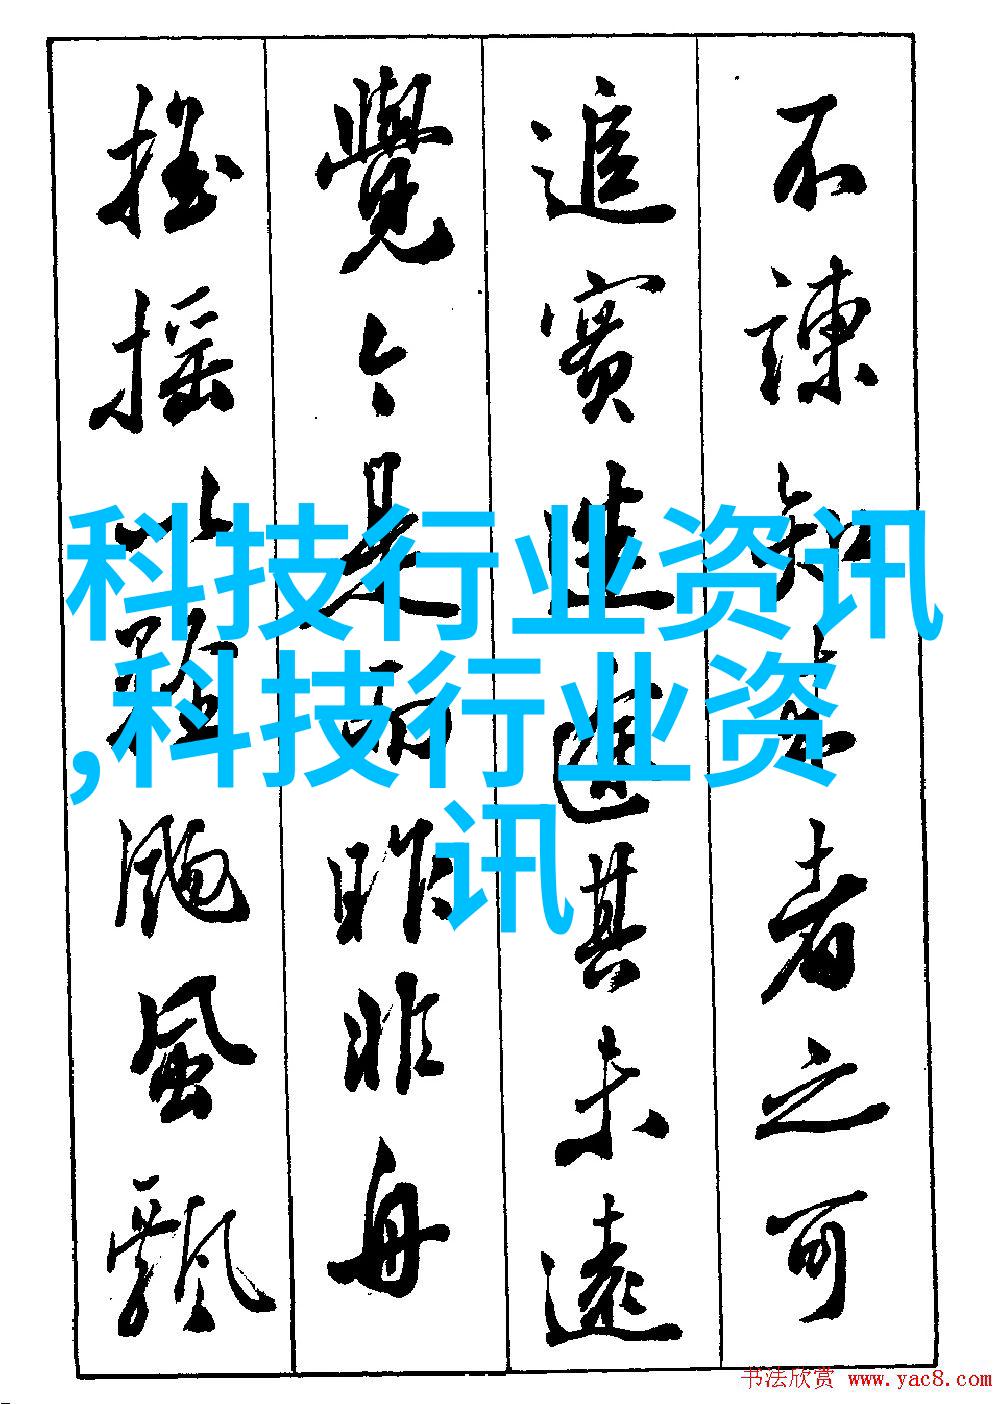 不諫知来者之可
追實迷途其未遠
覺今是而昨非舟
搖摇以輕颺風飄
科技行业资讯
,科技行业资
讯
书法欣赏 www.yac8.com